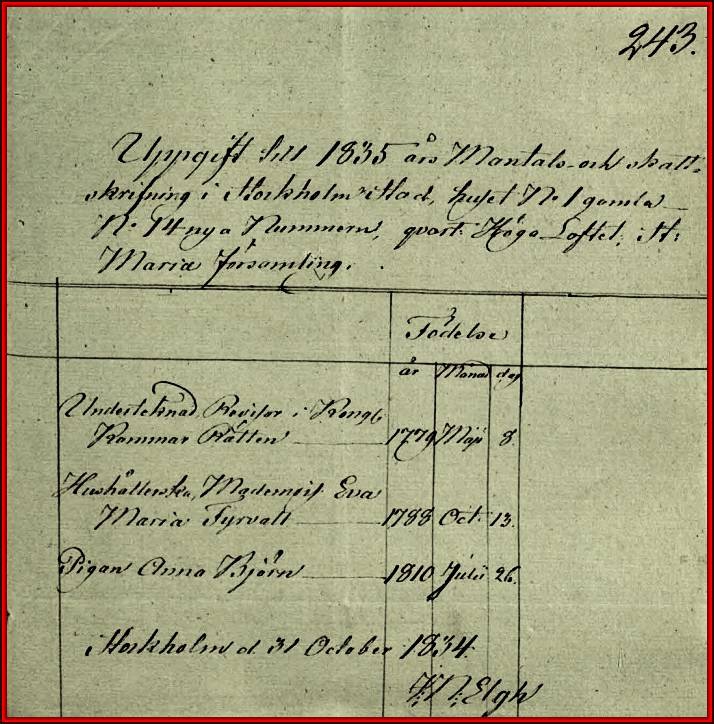 243.
Uppgift till 1835 års Mantals- och skatt-
skrifning i Stockholm Stad, huset No 1 gamla
No 14 nya Nummern, qvart: Höga Loftet, St:
Maria församling.
Födelse
år Månad dag
Undertecknad, Revisor i Kongl.
Kammar Rätten 1779 Maji 8
Hushållerska, Mademois. Eva
Maria Tyrvall 1788 Oct. 13.
Pigan Anna Björn 1810 Julii 26.
Stockholm d. 31 October 1834.
Elgh